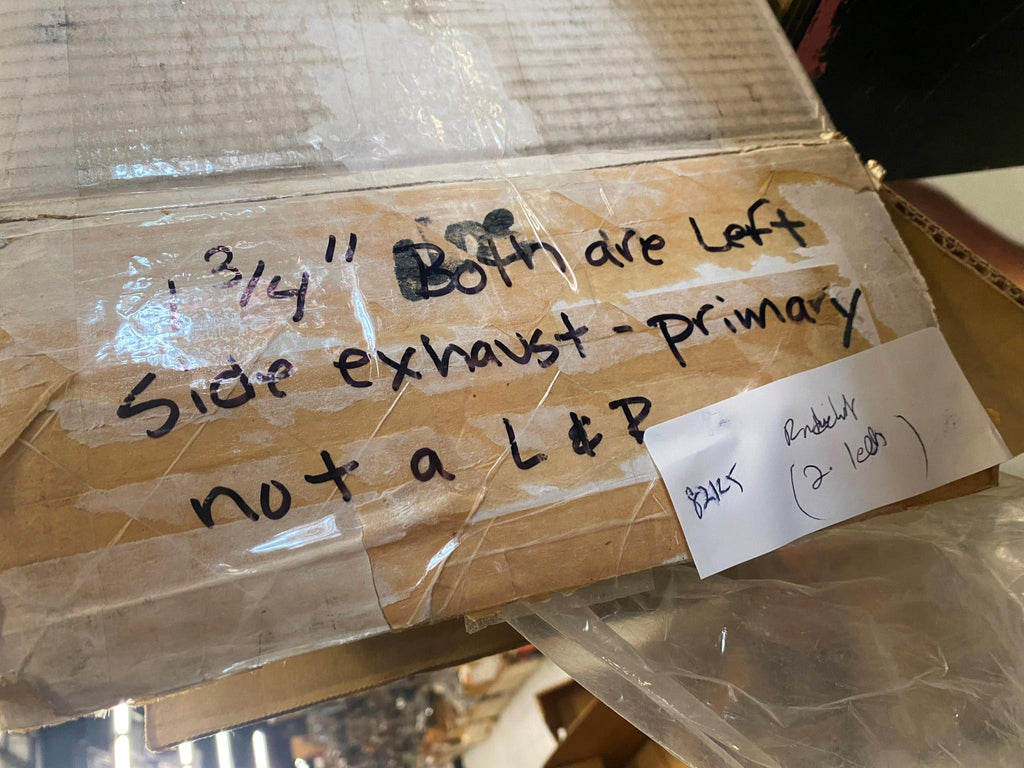 1 3/4" Both are Left
Side exhaust - primary
not a L & R
82125
(2 lefts)